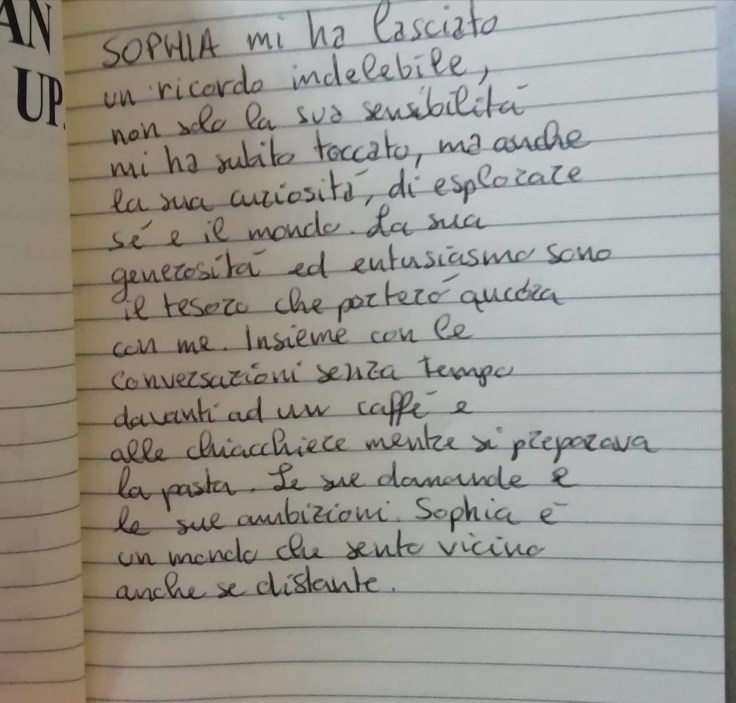 AN
UP.
SOPHIA mi ha lasciato
un ricordo indelebile,
non solo la sua sensibilità
mi ha subito toccato, ma anche
la sua curiosità, di esplorare
sé e il mondo. La sua
generosità ed entusiasmo sono
il tesoro che porterò ancora
con me. Insieme con le
conversazioni senza tempo
davanti ad un caffè e
alle chiacchiere mentre si preparava
la pasta. Le sue domande e
le sue ambizioni. Sophia è
un mondo che sento vicino
anche se distante.